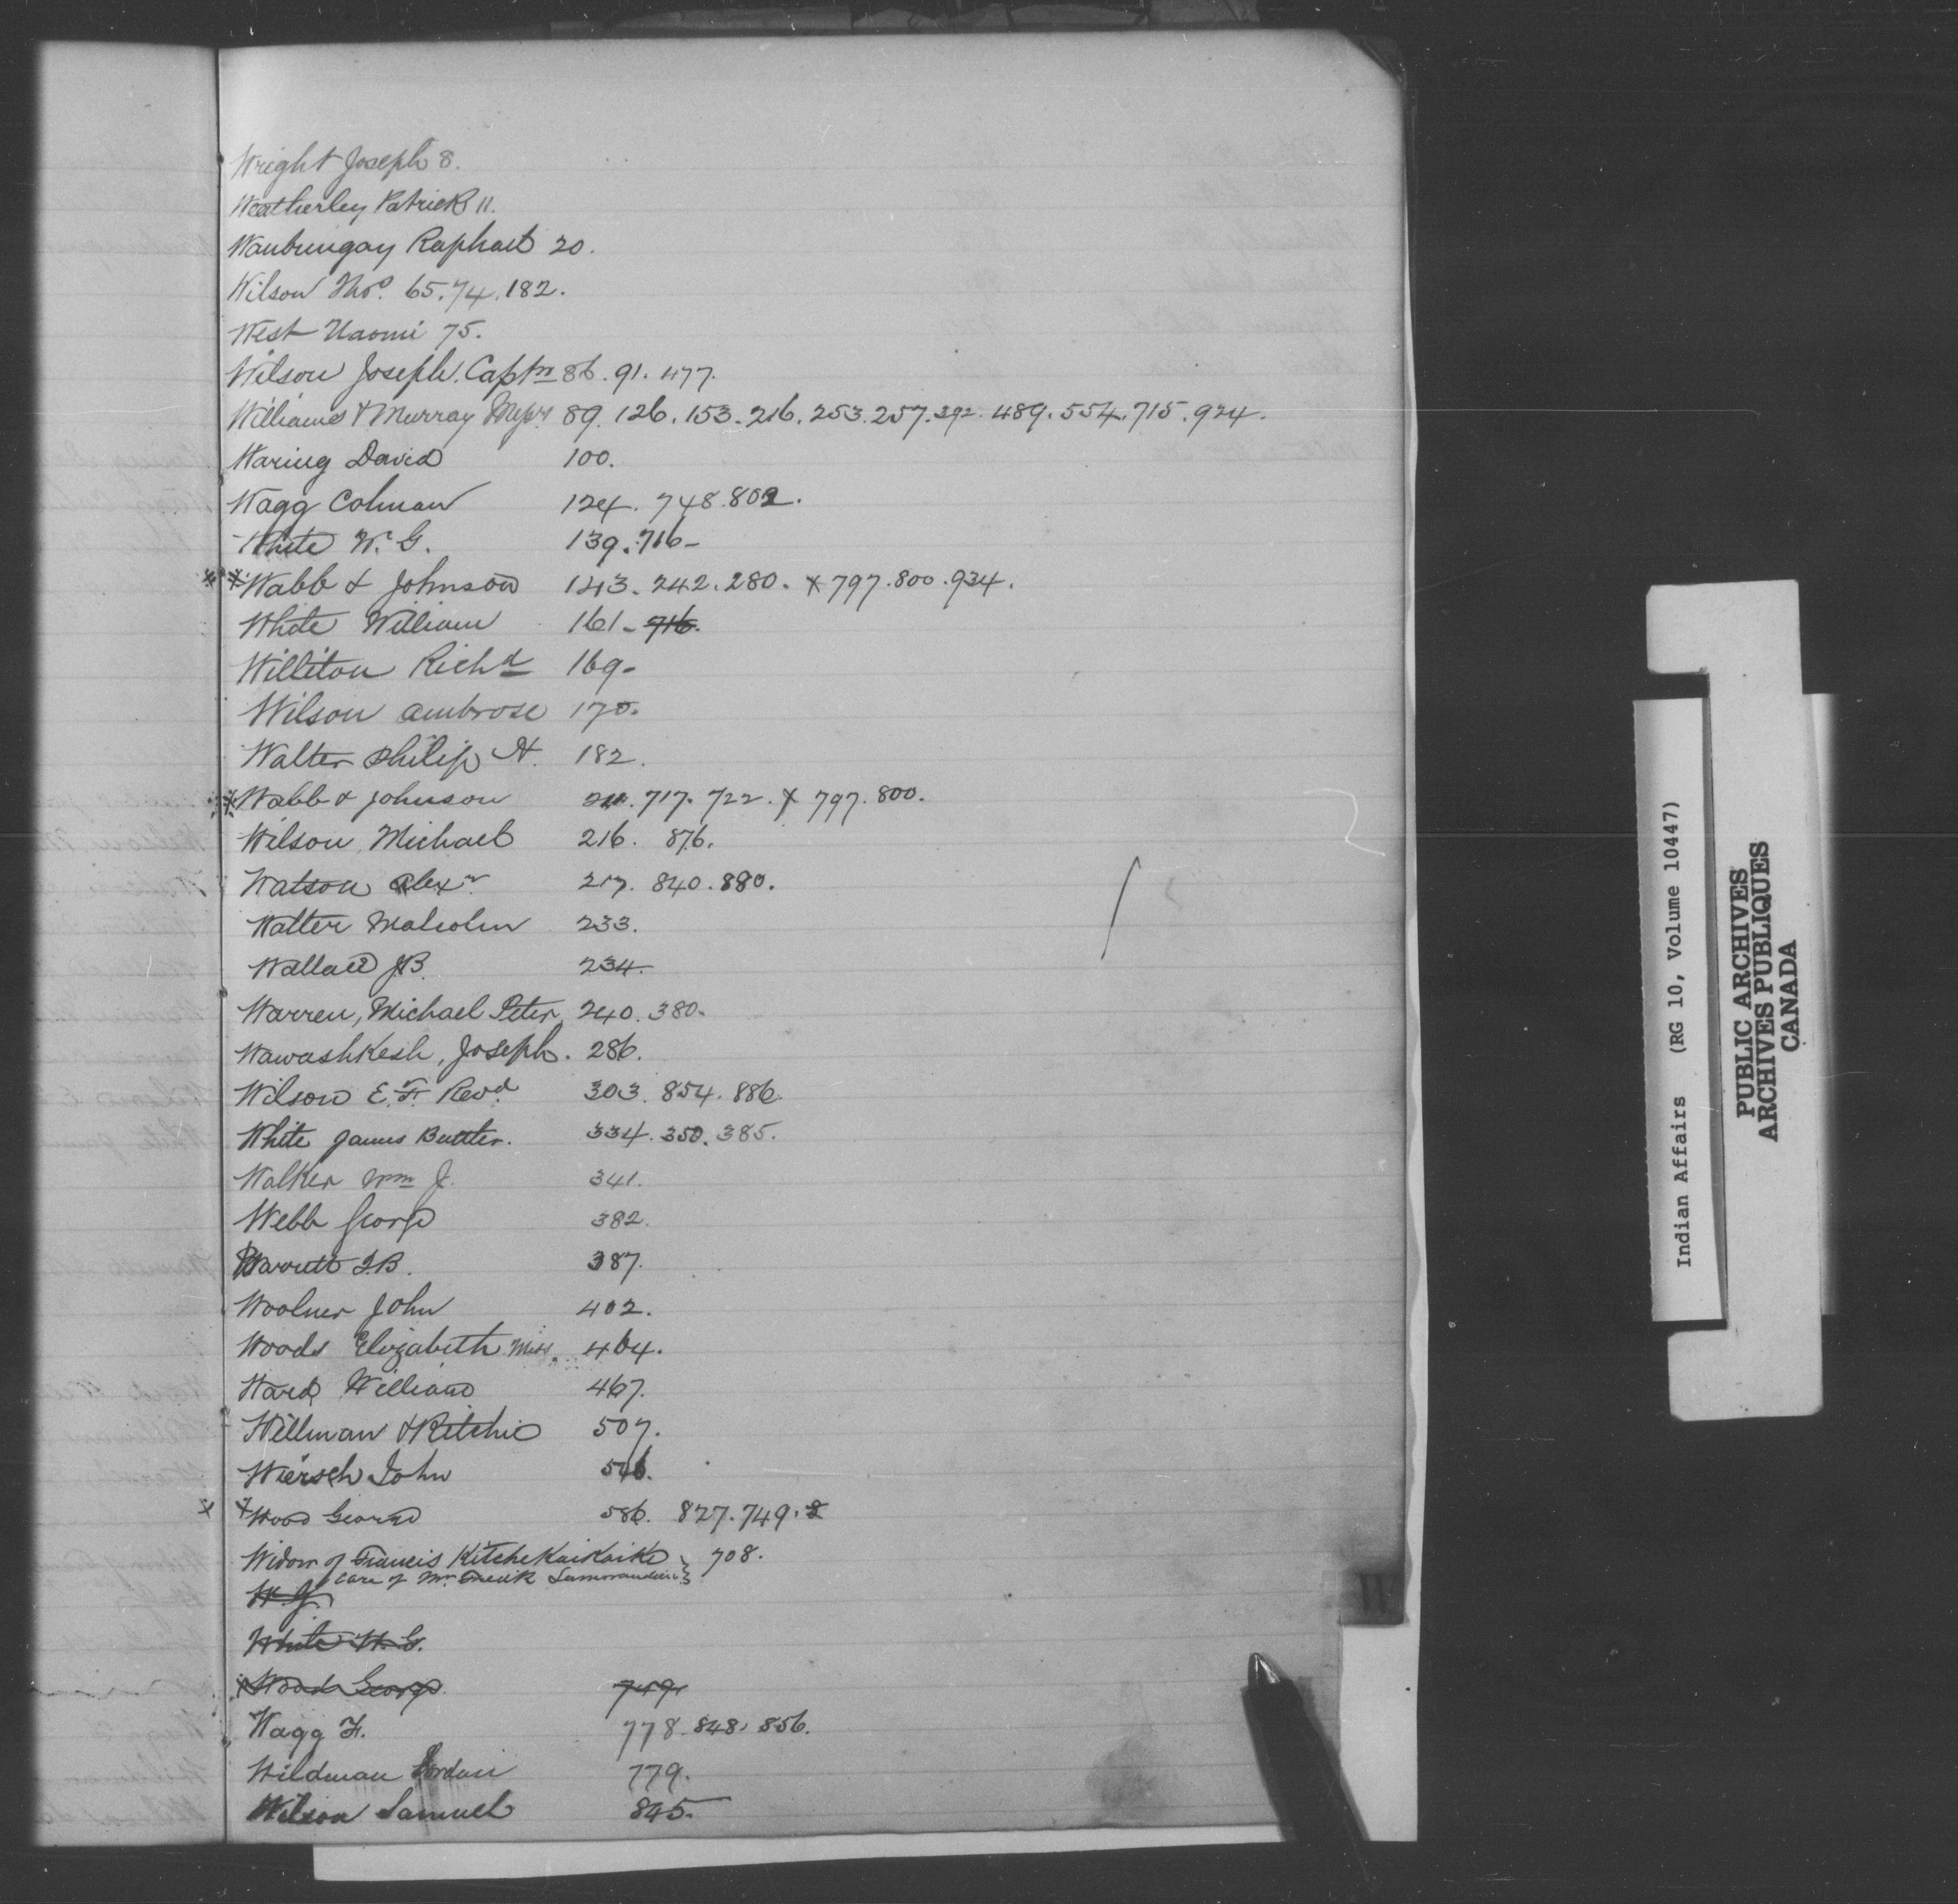 Wright Joseph 8.
Weatherley Patrick 11.
Waubungay Raphael 20.
Wilson Thos. 65. 74. 182.
West Naomi 75.
Wilson Joseph. Captn 86. 91. 477.
Williams & Murray Messrs 89. 126. 153. 216. 253. 257. 392. 489. 554. 715. 924.
Waring David 100.
Wagg Colman 124. 748. 802.
White W. G. 139. 716-
Wabb & Johnson 143. 242. 280. x 797. 800. 934.
White William 161- 716.
Williton Richd 169-
Wilson Ambrose 170.
Walter Philip H. 182.
Wabb & Johnson 211. 717. 722. x 797. 800.
Wilson Michael 216. 876.
Watson Alexr 217. 840. 880.
Walter Malcolm 233.
Wallace J.B. 234.
Warren, Michael Peter, 240. 380.
Wawashkesh, Joseph. 286.
Wilson E. F. Revd. 303. 854. 886.
White James Butler. 334. 350. 385.
Walker Wm J. 341.
Webb George 382.
J.B. 387.
Woolner John 402.
Woods Elizabeth Miss. 464.
Ward William 467.
Willman & Ritchie 507.
Wiersch John
x x Wood George 586. 827. 749.
Widow of Francis Kitchekaikaike } 708.
care of Mr
W. J.
White W. G.
Wood George 749.
Wagg F. 778. 848. 856.
Wildman Jordan 779.
Wilson Samuel 845.
W
Indian Affairs (RG 10, Volume 10447)
PUBLIC ARCHIVES
ARCHIVES PUBLIQUES
CANADA